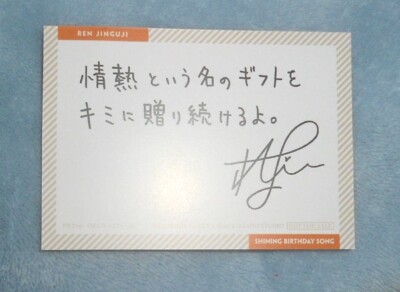 REN JINGUJI
情熱という名のギフトを
キミに贈り続けるよ。
SHINING BIRTHDAY SONG